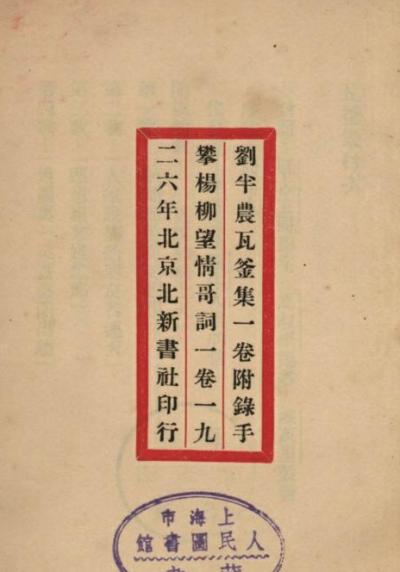 劉半農瓦釜集一卷附錄手
攀楊柳望情哥詞一卷一九
二六年北京北新書社印行
上海市
人民圖書館